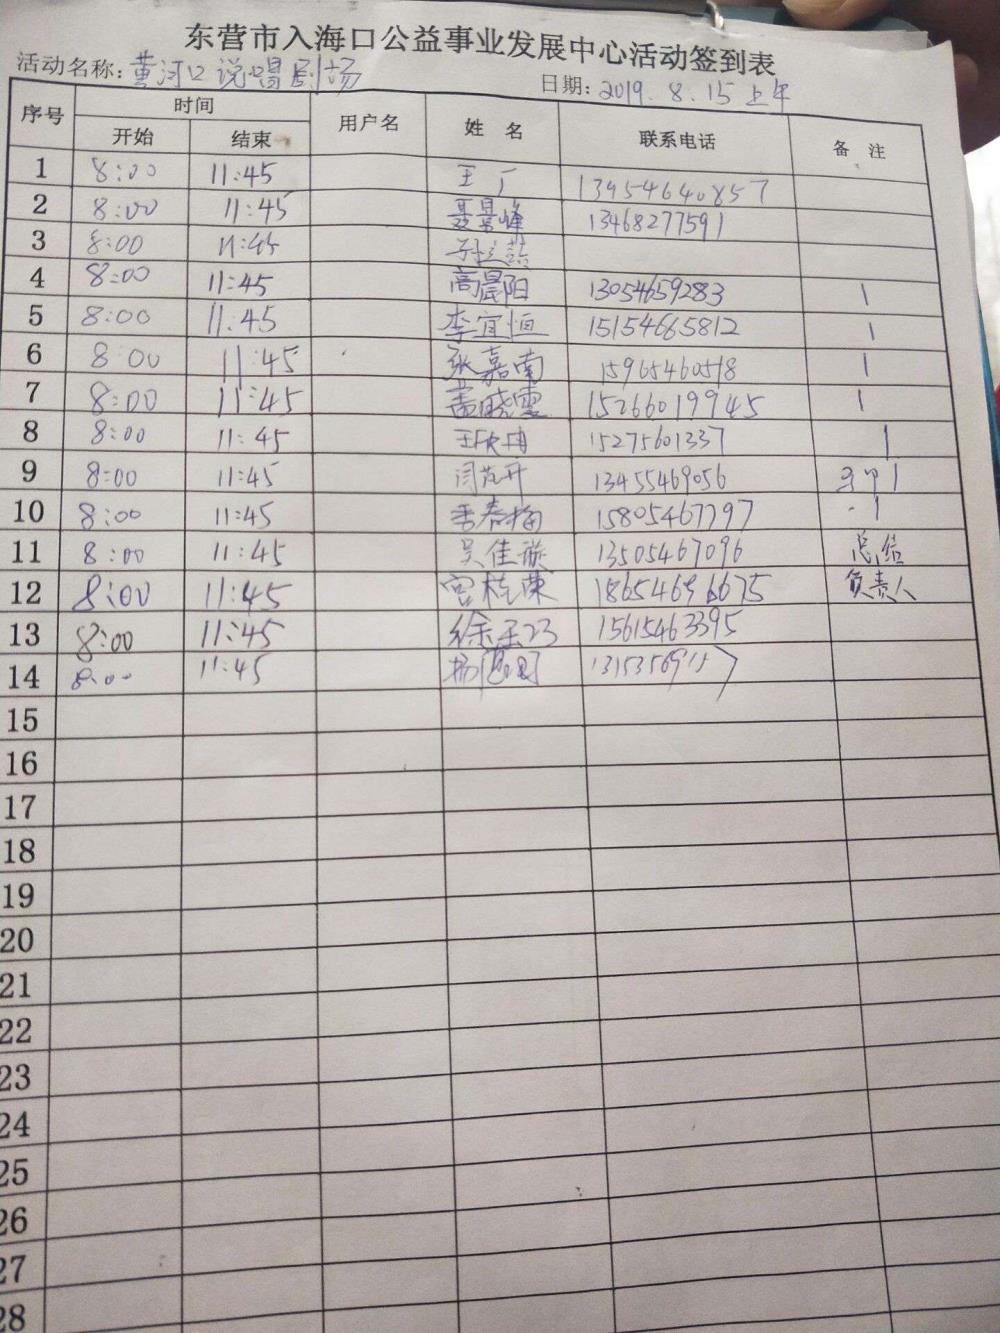 东营市入海口公益事业发展中心活动签到表
活动名称: 黄河口说唱剧场 日期: 2019.8.15上午
序号 时间 用户名 姓名 联系电话 备注
开始 结束
1 8:00 11:45 王 13954640857
2 8:00 11:45 聂景峰 13468277591
3 8:00 11:45
4 8:00 11:45 高晨阳 13054659283 1
5 8:00 11:45 李宜恒 15154665812 1
6 8:00 11:45 张嘉南 15965460518 1
7 8:00 11:45 盖晓雪 15266019945 1
8 8:00 11:45 王欣冉 15275601337 1
9 8:00 11:45 13455469056
10 8:00 11:45 季春梅 15805467797 1
11 8:00 11:45 吴佳璇 13505467096 总结
12 8:00 11:45 宫桂荣 18654696675 负责人
13 8:00 11:45 徐玉 15615463395
14 8:00 11:45 杨
15
16
17
18
19
20
21
22
23
24
25
26
27
28